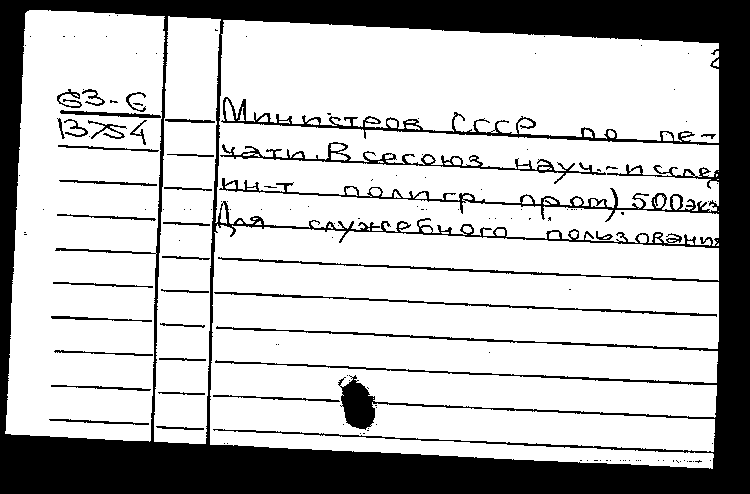 2
63-6
13754
Министров СССР по пе-
чати. Всесоюз. науч.-исслед
ин-т полигр. пром). 500экз
Для служебного пользования